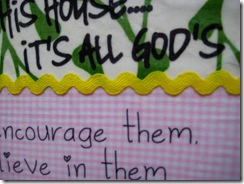 HiS HOUSE....
iT'S ALL GOD'S
encourage them.
lieve in them